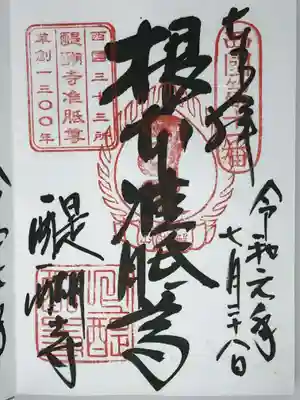 奉拝
令和元年
七月二十八日
根本准胝尊
西国三十三所
醍醐寺准胝尊
草創一三〇〇年
醍醐寺